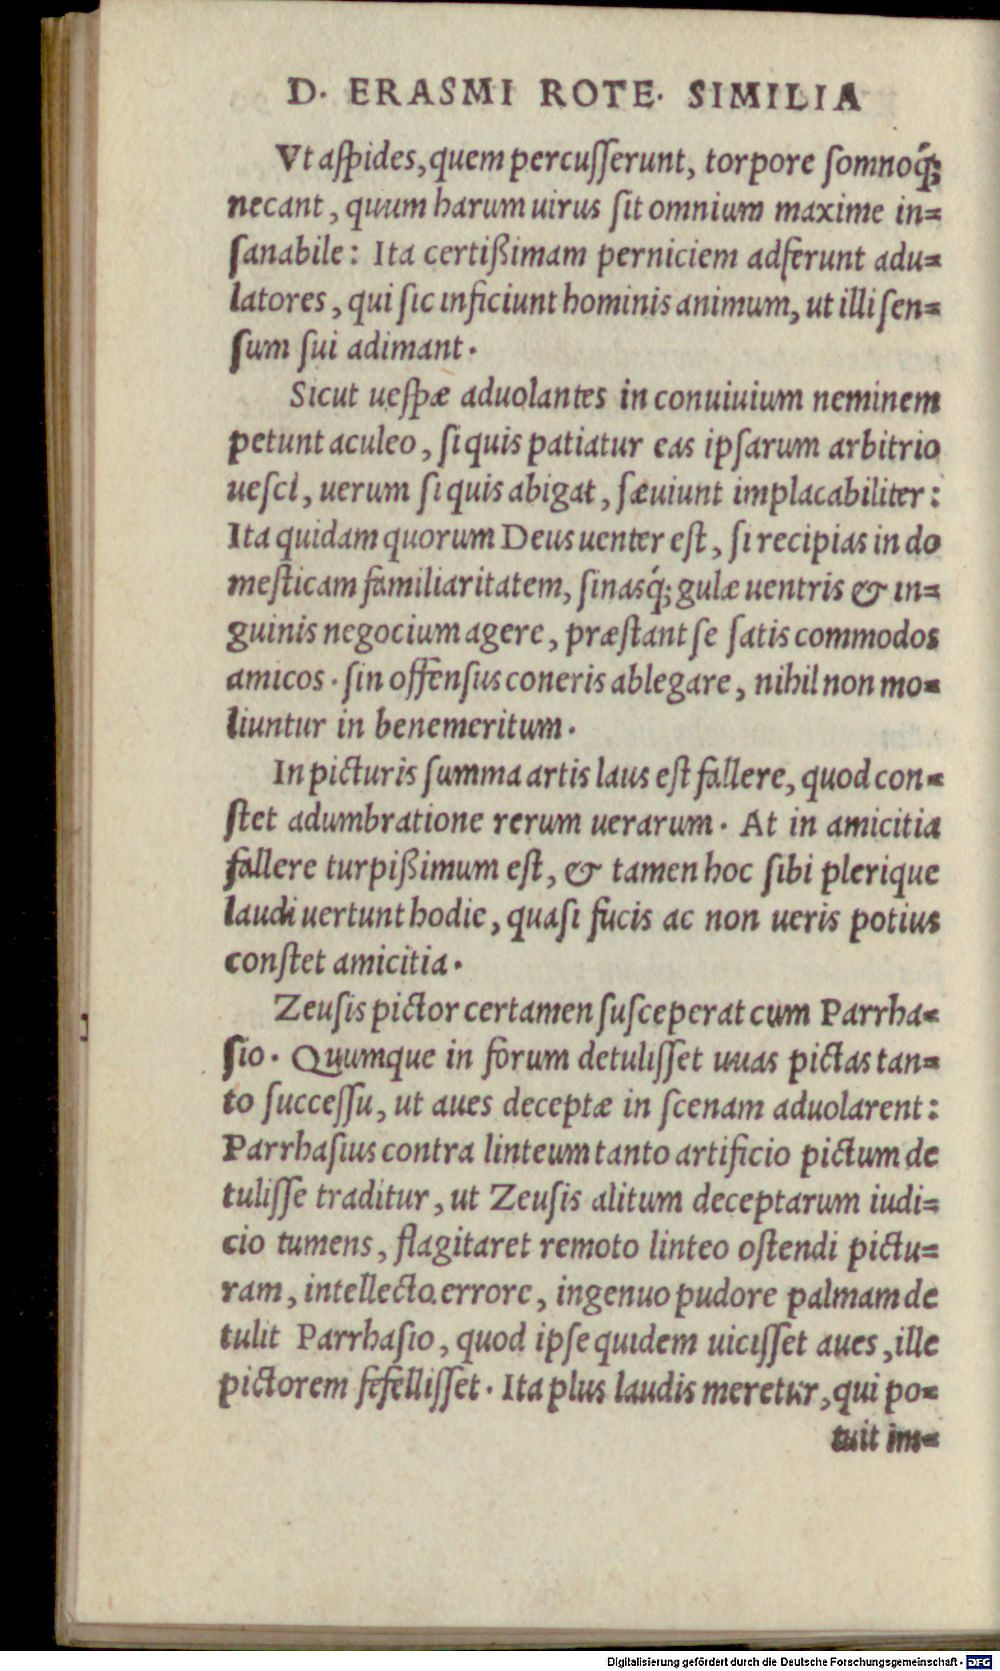 D. ERASMI ROTE. SIMILIA
Vt aſpides, quem percuſſerunt, torpore ſomnoq́;
necant, quum harum uirus ſit omnium maxime in=
ſanabile: Ita certißimam perniciem adferunt adu=
latores, qui ſic inficiunt hominis animum, ut illi ſen=
ſum ſui adimant.
Sicut ueſpæ aduolantes in conuiuium neminem
petunt aculeo, ſi quis patiatur eas ipſarum arbitrio
ueſci, uerum ſi quis abigat, ſæuiunt implacabiliter:
Ita quidam quorum Deus uenter eſt, ſi recipias in do
meſticam familiaritatem, ſinasq́; gulæ uentris & in=
guinis negocium agere, præſtant ſe ſatis commodos
amicos. ſin offenſus coneris ablegare, nihil non mo=
liuntur in benemeritum.
In picturis ſumma artis laus eſt fallere, quod con=
ſtet adumbratione rerum uerarum. At in amicitia
fallere turpißimum eſt, & tamen hoc ſibi plerique
laudi uertunt hodie, quaſi fucis ac non ueris potius
conſtet amicitia.
Zeuſis pictor certamen ſuſceperat cum Parrha=
ſio. Quumque in forum detuliſſet uuas pictas tan=
to ſucceſſu, ut aues deceptæ in ſcenam aduolarent:
Parrhaſius contra linteum tanto artificio pictum de
tuliſſe traditur, ut Zeuſis alitum deceptarum iudi=
cio tumens, flagitaret remoto linteo oſtendi pictu=
ram, intellecto errore, ingenuo pudore palmam de
tulit Parrhaſio, quod ipſe quidem uiciſſet aues, ille
pictorem fefelliſſet. Ita plus laudis meretur, qui po=
tuit im=
Digitalisierung gefördert durch die Deutsche Forschungsgemeinschaft - DFG